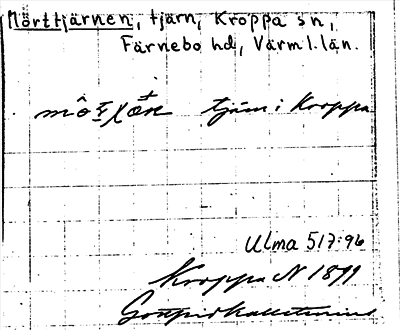 Mörttjärnen, tjärn, Kroppa sn,
Färnebo hd, Värml. län.
tjärn i Kroppa
Ulma 517:96
Kroppa N 1899
Gottfrid Kallstenius